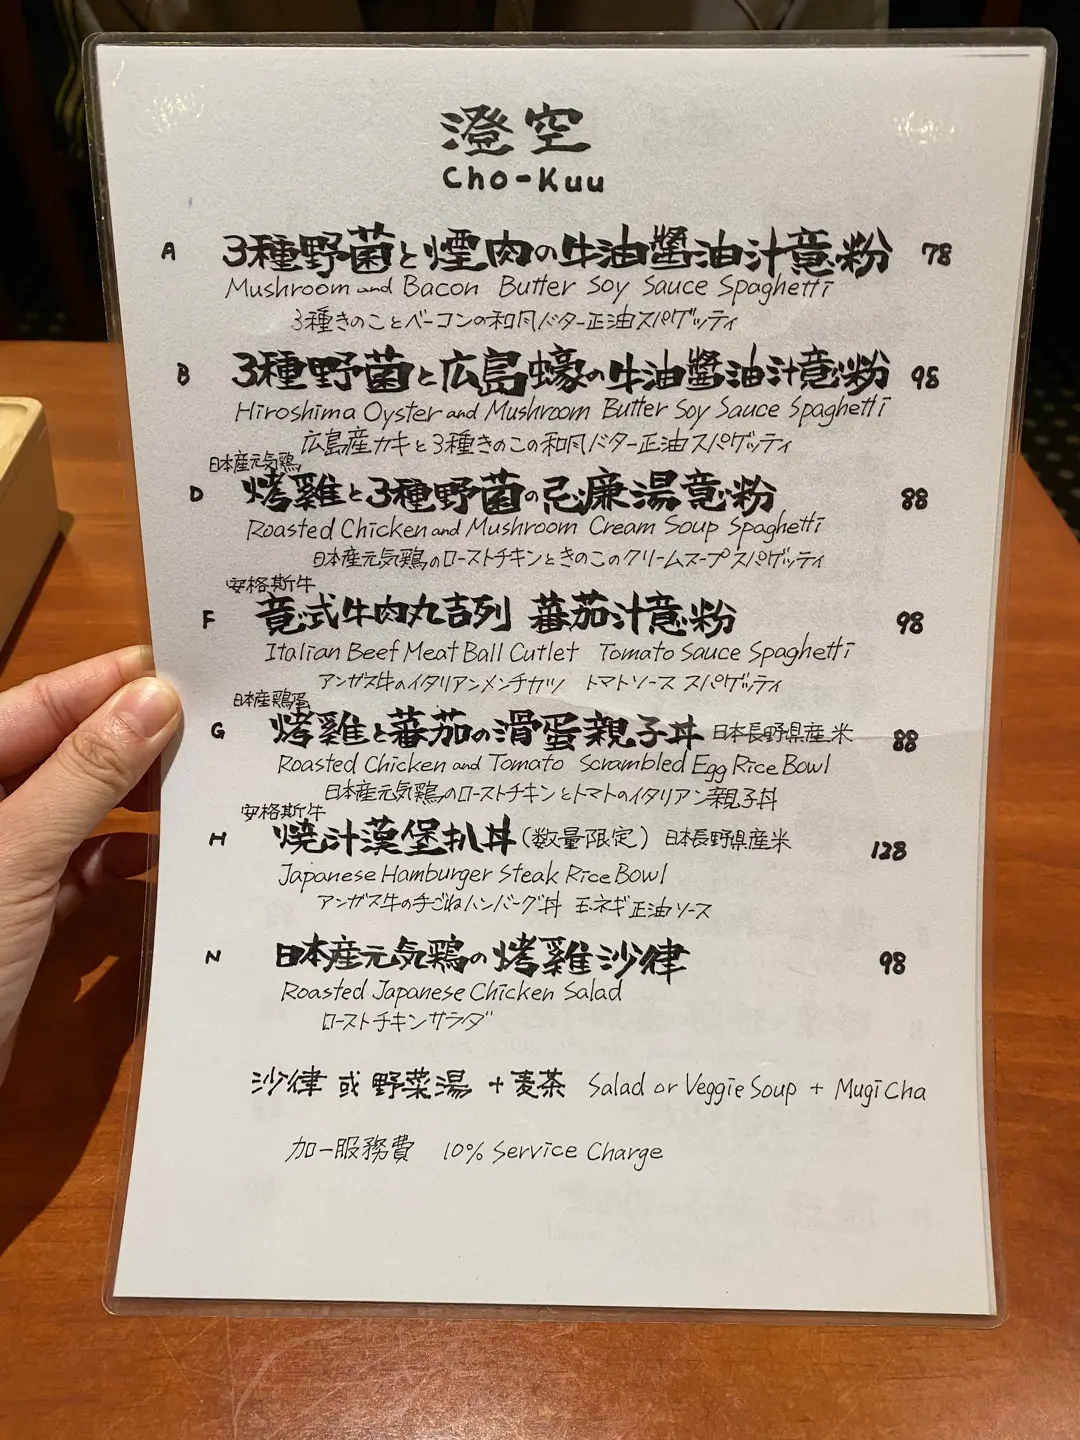 澄空
Cho-Kuu
A 3種野菌と煙肉の牛油醬油汁意粉 78
Mushroom and Bacon Butter Soy Sauce Spaghetti
3種きのことベーコンの和風バター正油スパゲッティ
B 3種野菌と広島蠔の牛油醬油汁意粉 98
Hiroshima Oyster and Mushroom Butter Soy Sauce Spaghetti
広島産カキと3種きのこの和風バター正油スパゲッティ
日本産元気鶏
D 烤雞と3種野菌の忌廉湯意粉 88
Roasted Chicken and Mushroom Cream Soup Spaghetti
日本産元気鶏のローストチキンときのこのクリームスープスパゲッティ
安格斯牛
F 意式牛肉丸吉列 蕃茄汁意粉 98
Italian Beef Meat Ball Cutlet Tomato Sauce Spaghetti
アンガス牛のイタリアンメンチカツ トマトソース スパゲッティ
日本産鶏蛋
G 烤雞と蕃茄の滑蛋親子丼 日本長野県産米 88
Roasted Chicken and Tomato Scrambled Egg Rice Bowl
日本産元気鶏のローストチキンとトマトのイタリアン親子丼
安格斯牛
H 燒汁漢堡扒丼(数量限定) 日本長野県産米 128
Japanese Hamburger Steak Rice Bowl
アンガス牛の手ごねハンバーグ丼 玉ネギ正油ソース
N 日本産元気鶏の烤雞沙律 98
Roasted Japanese Chicken Salad
ローストチキンサラダ
沙律 或 野菜湯 +麦茶 Salad or Veggie Soup + Mugi Cha
加一服務費 10% Service Charge